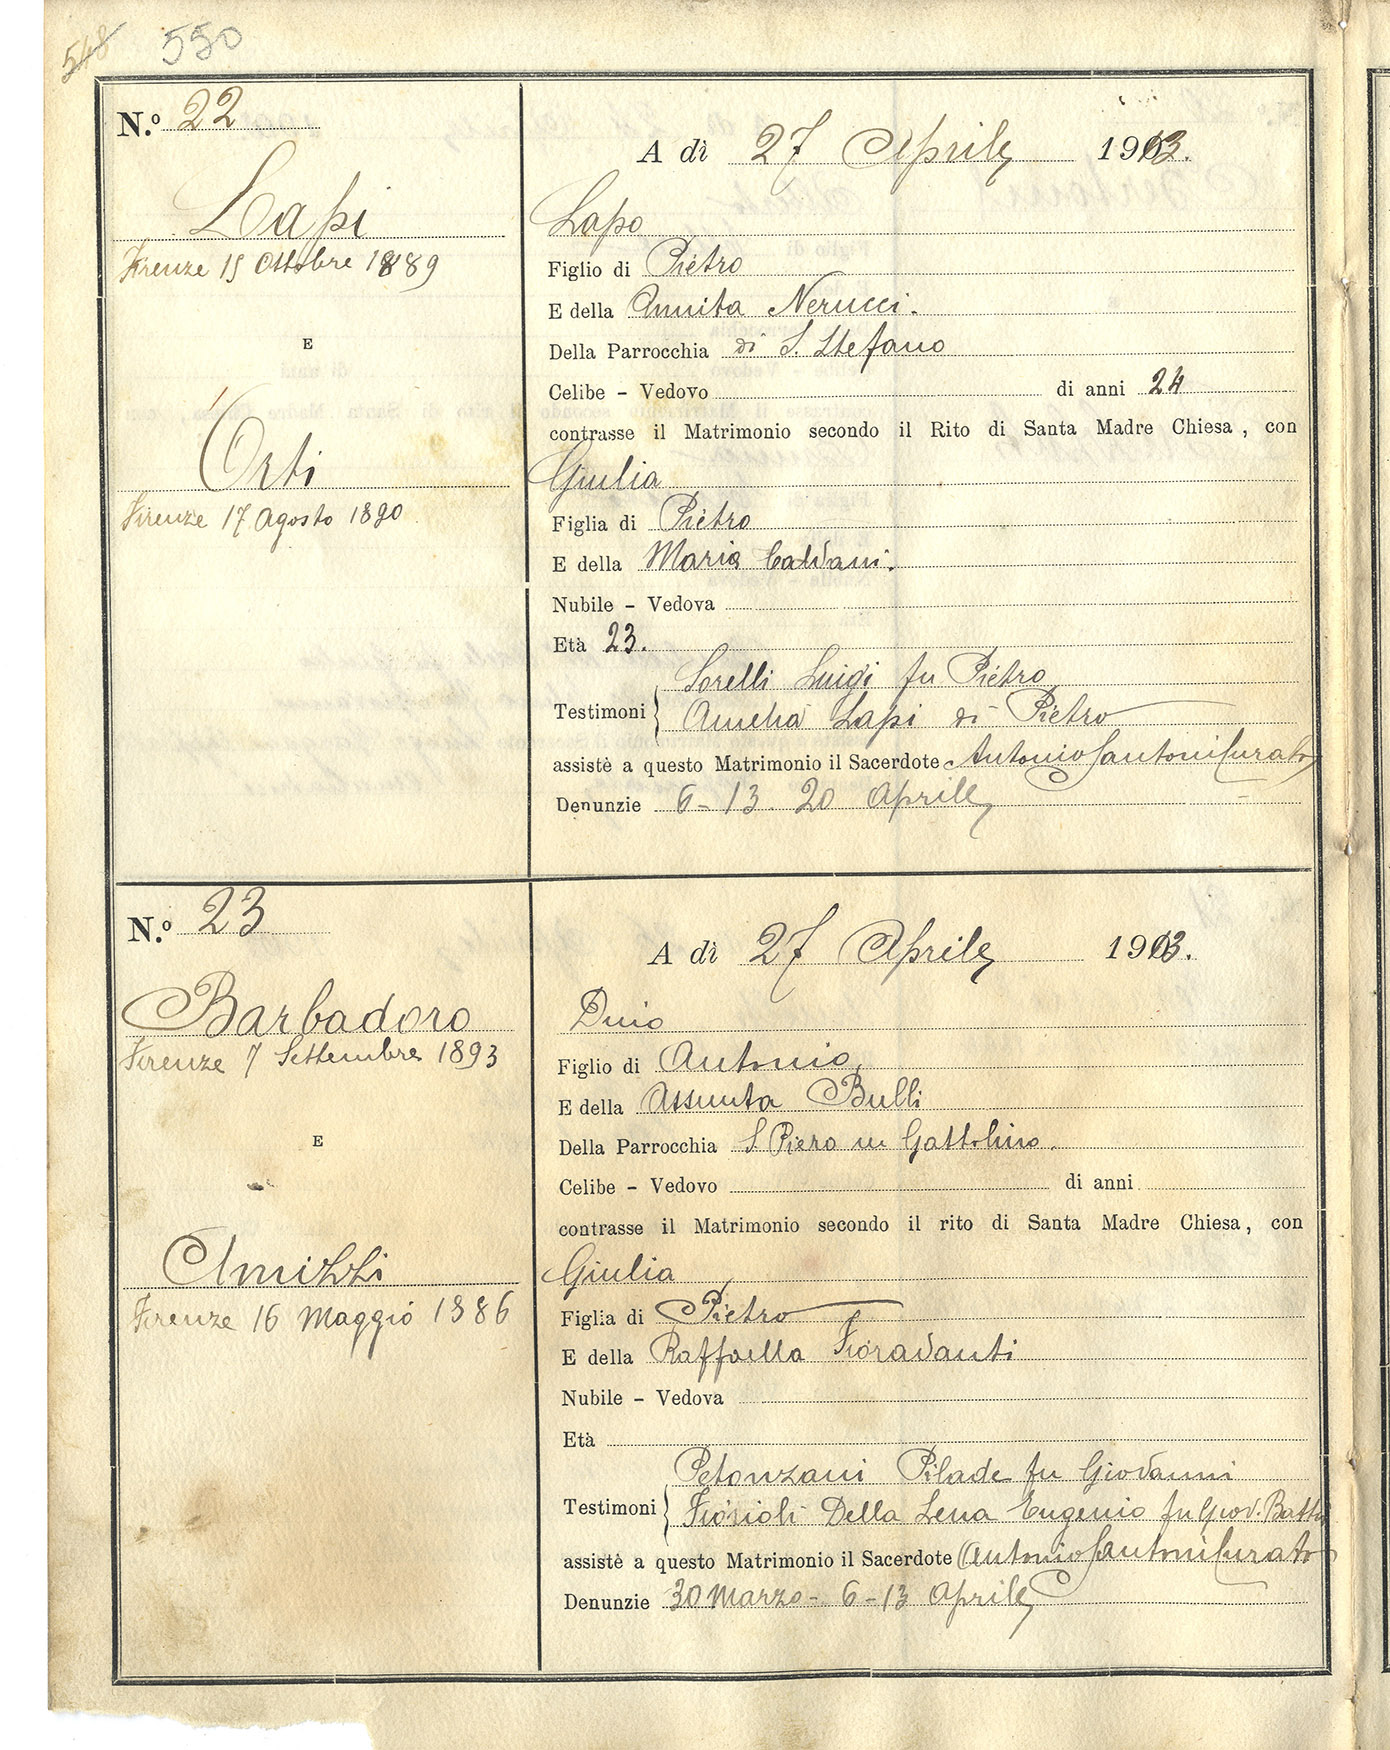 548 550
N.º 22
A dì 27 Aprile 1913.
Lapi
Lapo
Firenze 15 Ottobre 1889
Figlio di Pietro
E della Annita Nerucci.
E
Della Parrocchia di S. Stefano
Celibe – Vedovo di anni 24
contrasse il Matrimonio secondo il Rito di Santa Madre Chiesa, con
Orti
Giulia
Firenze 17 Agosto 1890
Figlia di Pietro
E della Maria Caldani.
Nubile – Vedova
Età 23.
Sorelli Luigi fu Pietro
Testimoni Amelia Lapi di Pietro
assistè a questo Matrimonio il Sacerdote Antonio Santoni Curato
Denunzie 6 – 13. 20 Aprile
N.º 23
A dì 27 Aprile 1913.
Barbadoro
Dino
Firenze 7 Settembre 1893
Figlio di Antonio
E della Assunta Bulli
E
Della Parrocchia S. Piero in Gattolino.
Celibe – Vedovo di anni
contrasse il Matrimonio secondo il rito di Santa Madre Chiesa, con
Amizzi
Giulia
Firenze 16 Maggio 1886
Figlia di Pietro
E della Raffaella Fioravanti
Nubile – Vedova
Età
Petonzani Pilade fu Giovanni
Testimoni Della Lena Eugenio fu Giov. Batta
assistè a questo Matrimonio il Sacerdote Antonio Santoni Curato
Denunzie 30 Marzo – 6 – 13 Aprile